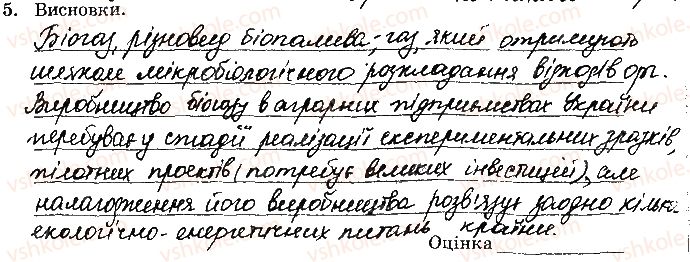 5. Висновки.
Біогаз, різновид біопалива, - газ, який отримують
шляхом мікробіологічного розкладання відходів орг.
Виробництво біогазу в аграрних підприємствах України
перебуває у стадії реалізації експериментальних зразків,
пілотних проєктів (потребує великих інвестицій), але
налагодження його виробництва розв'язує заодно кілька
екологічно-енергетичних питань країни.
Оцінка